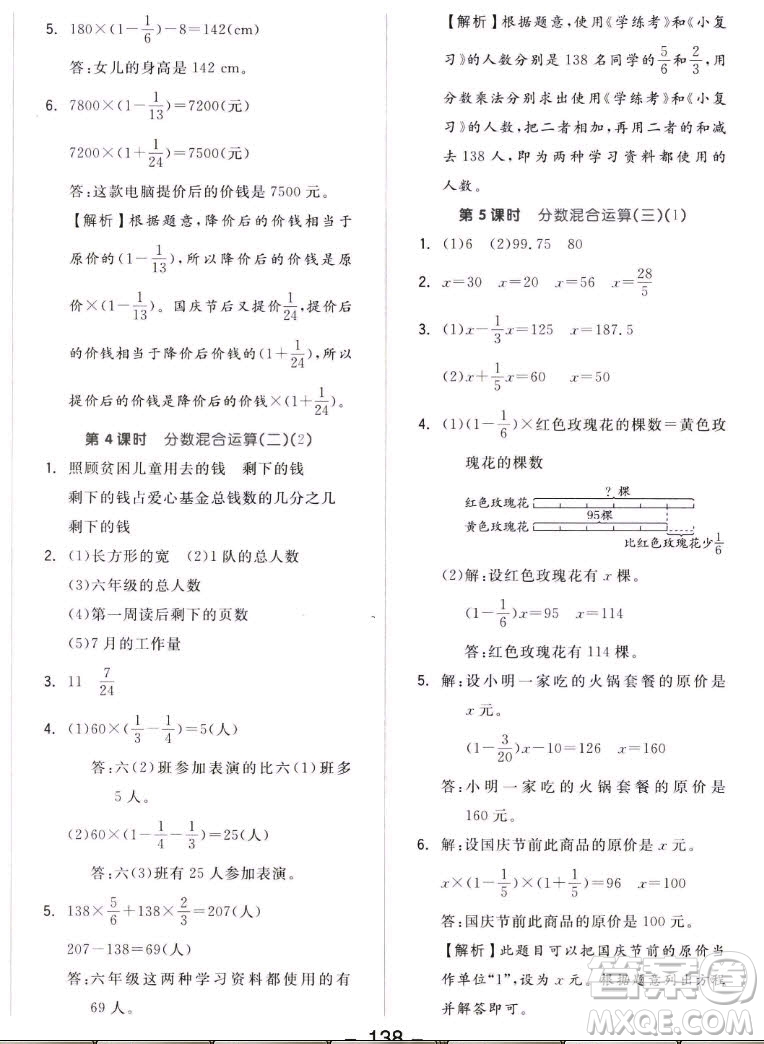 5. 180×(1−1/6)−8=142(cm)
答:女儿的身高是 142 cm。
6. 7800×(1−1/13)=7200(元)
7200×(1+1/24)=7500(元)
答:这款电脑提价后的价钱是 7500 元。
【解析】根据题意,降价后的价钱等于
原价的(1−1/13),所以降价后的价钱是原
价×(1−1/13)。国庆节后又提价1/24,提价后
的价钱是降价后的价钱的(1+1/24),所以
提价后的价钱是降价后的价钱×(1+1/24)。
第 4 课时 分数混合运算(二)(2)
1. 照顾贫困儿童用去的钱 剩下的钱
剩下的钱占爱心基金总钱数的几分之几
剩下的钱
2. (1)长方形的宽 (2)1 队的总人数
(3)六年级的总人数
(4)第一周读后剩下的页数
(5)7 月的工作量
3. 11 7/24
4. (1)60×(1/3−1/4)=5(人)
答:六(2)班参加表演的比六(1)班多
5 人。
(2)60×(1−1/4−1/3)=25(人)
答:六(3)班有 25 人参加表演。
5. 138×5/6+138×2/3=207(人)
207−138=69(人)
答:六年级这两种学习资料都使用的有
69 人。
【解析】根据题意,使用《学练考》和《小复
习》的人数分别是 138 名同学的5/6和2/3,用
分数乘法分别求出使用《学练考》和《小复习》
的人数,把二者相加,再用二者的和减
去 138 人,即为两种学习资料都使用的
人数。
第 5 课时 分数混合运算(三)(1)
1. (1)6 (2)99.75 80
2. x=30 x=20 x=56 x=28/5
3. (1)x−1/3x=125 x=187.5
(2)x+1/5x=60 x=50
4. (1)(1−1/6)×红色玫瑰花的棵数=黄色玫
瑰花的棵数
? 棵
红色玫瑰花
95棵
黄色玫瑰花
比红色玫瑰花少1/6
(2)解:设红色玫瑰花有 x 棵。
(1−1/6)x=95 x=114
答:红色玫瑰花有 114 棵。
5. 解:设小明一家吃的火锅套餐的原价是
x 元。
(1−3/20)x−10=126 x=160
答:小明一家吃的火锅套餐的原价是
160 元。
6. 解:设国庆节前此商品的原价是 x 元。
x×(1−1/5)×(1+1/5)=96 x=100
答:国庆节前此商品的原价是 100 元。
【解析】此题目可以把国庆节前的原价当
作单位“1”,设为 x 元。根据题意列出方程
并解答即可。
答案圈
– 138 –